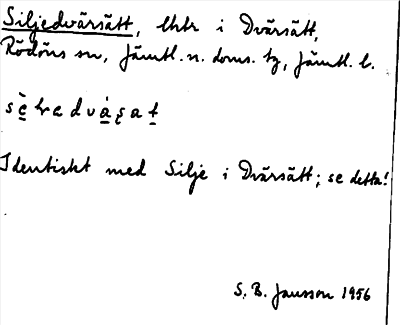 Siljedvärsätt, lhtr i Dvärsätt,
Rödöns sn, Jämtl. n. doms. tg, Jämtl. l.
Identiskt med Silje i Dvärsätt; se detta!
S. B. Jansson 1956